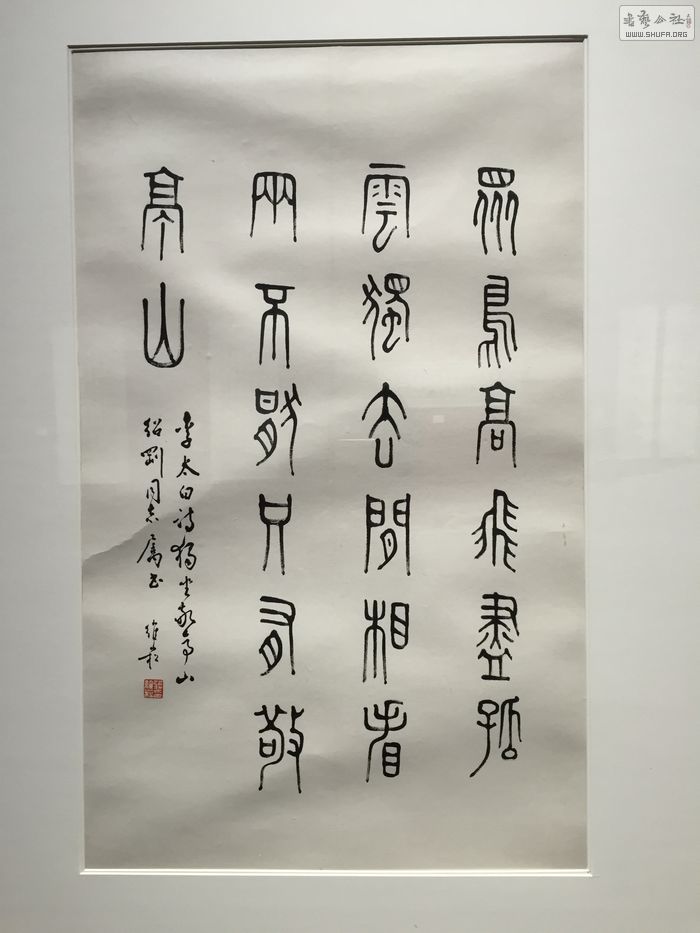 眾鳥高飛盡孤
雲獨去閒相看
兩不猒只有敬
亭山
李太白詩獨坐敬亭山
紹剛同志属书 維崧
書藝公社
WWW.SHUFA.ORG